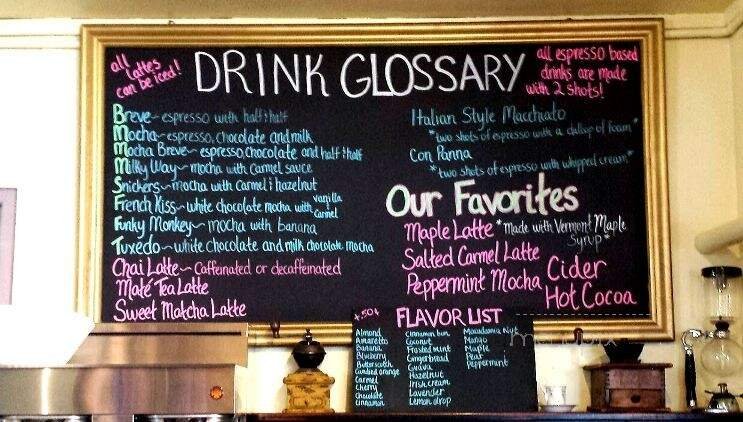 all lattes can be iced!
DRINK GLOSSARY
all espresso based drinks are made with 2 shots!
Breve~espresso with half & half
Mocha~espresso, chocolate and milk
Mocha Breve~espresso, chocolate and half & half
Milky Way~mocha with Carmel sauce
Snickers~mocha with Carmel & hazelnut
French Kiss~white chocolate mocha with vanilla & Carmel
Funky Monkey~mocha with banana
Tuxedo~white chocolate and milk chocolate mocha
Chai Latte~Caffeinated or decaffeinated
Maté Tea Latte
Sweet Matcha Latte
Italian Style Macchiato
*two shots of espresso with a dollop of foam*
Con Panna
*two shots of espresso with whipped cream*
Our Favorites
Maple Latte *Made with Vermont Maple Syrup*
Salted Carmel Latte
Peppermint Mocha
Cider
Hot Cocoa
+50¢
FLAVOR LIST
Almond
Amaretto
Banana
Blueberry
Butterscotch
Candied orange
Carmel
Cherry
Chocolate
Cinnamon
Cinnamon bun
Coconut
Frosted mint
Gingerbread
Guava
Hazelnut
Irish cream
Lavender
Lemon drop
Macadamia Nut
Mango
Maple
Pear
Peppermint